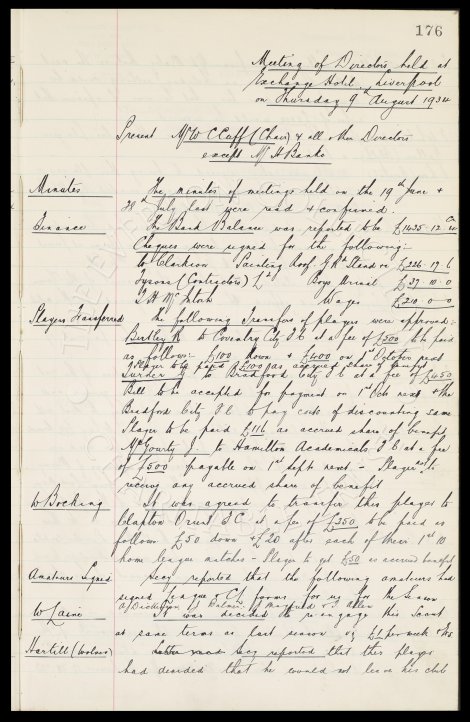 176
Meeting of Directors held at
Exchange Hotel, Liverpool
on Thursday 9th August 1934
Present Mr W C Cuff (Chair) & all other Directors
except Mr H Banks
Minutes The minutes of meetings held on the 19th June &
28th July last were read & confirmed.
Finance The Bank Balance was reported to be £1435.12.
Cheques were signed for the following:-
to Clarkson Painting Roof G Rd Stand £226.17.6
Tysons (Contractors) Ld Boys £37.10.0
Wages £210.0.0
Players Transferred The following Transfers of players were approved:-
to Coventry City F C at a fee of £500 to be paid
as follows: £100 down & £400 on 1st October next
Player to be paid £100 as accrued share of benefit
to Bradford City F C at a fee of £450
Bill to be accepted for payment on 1st Oct next & the
Bradford City F C to pay costs of discounting same
Player to be paid £116 as accrued share of benefit
McGourty J. to Hamilton Academicals F C at a fee
of £500 payable on 1st Sept next - Player not to
receive any accrued share of benefit
W Bocking It was agreed to transfer this player to
Clapton Orient F C at a fee of £350 to be paid as
follows £50 down & £20 after each of their 1st 10
home league matches - Player to get £50 as accrued benefit
Amateurs Signed Secy reported that the following amateurs had
signed League & CL forms for us for the Season
A Dickinson
W Laine It was decided to re-engage this Scout
at same terms as last season vz £2 per week & Exs
Hartill (Wolves) Secy reported that this player
had decided that he would not leave his club